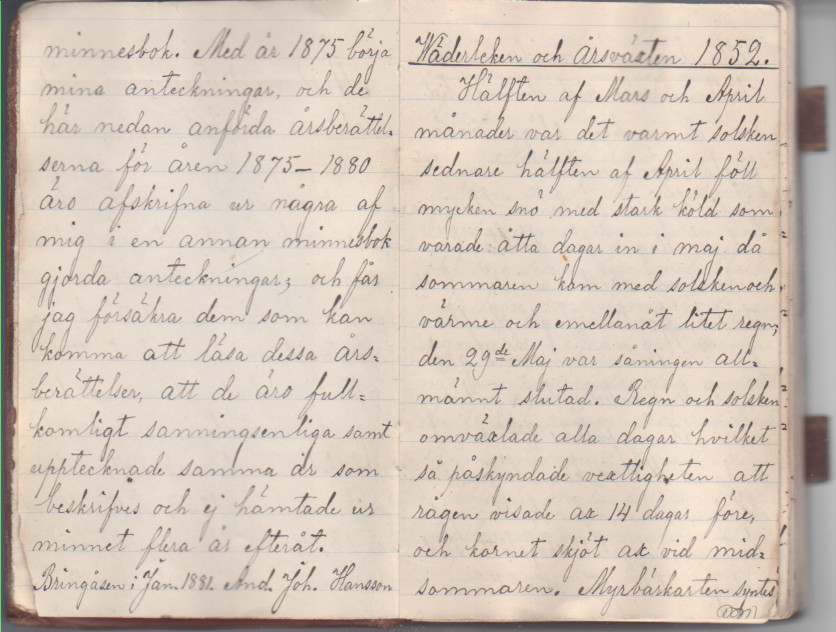 minnesbok. Med år 1875 börja
mina anteckningar, och de
här nedan anförda årsberättel-
serna för åren 1875–1880
äro afskrifna ur några af
mig i en annan minnesbok
gjorda anteckningar; och får
jag försäkra dem som kan
komma att läsa dessa års-
berättelser, att de äro full-
komligt sanningsenliga samt
upptecknade samma år som
beskrifves och ej hämtade ur
minnet flera år efteråt.
Bringåsen i Jan. 1881. And. Joh. Hansson
Wäderleken och årsväxten 1852.
Hälften af Mars och April
månader var det varmt solsken
sednare hälften af April föll
mycken snö med stark köld som
varade åtta dagar in i maj då
sommaren kom med solsken och
värme och emellanåt litet regn;
den 29de Maj var såningen all-
männt slutad. Regn och solsken
omväxlade alla dagar hvilket
så påskyndade växtligheten att
rågen visade ax 14 dagar före,
och kornet skjöt ax vid mid-
sommaren. Myrbärkarten syntes